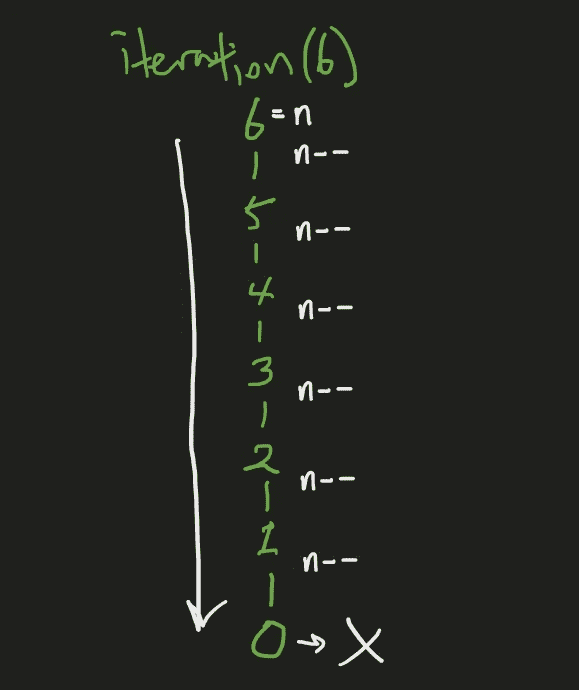 iteration(6)
6 = n
n--
5
n--
4
n--
3
n--
2
n--
1
n--
0 → X